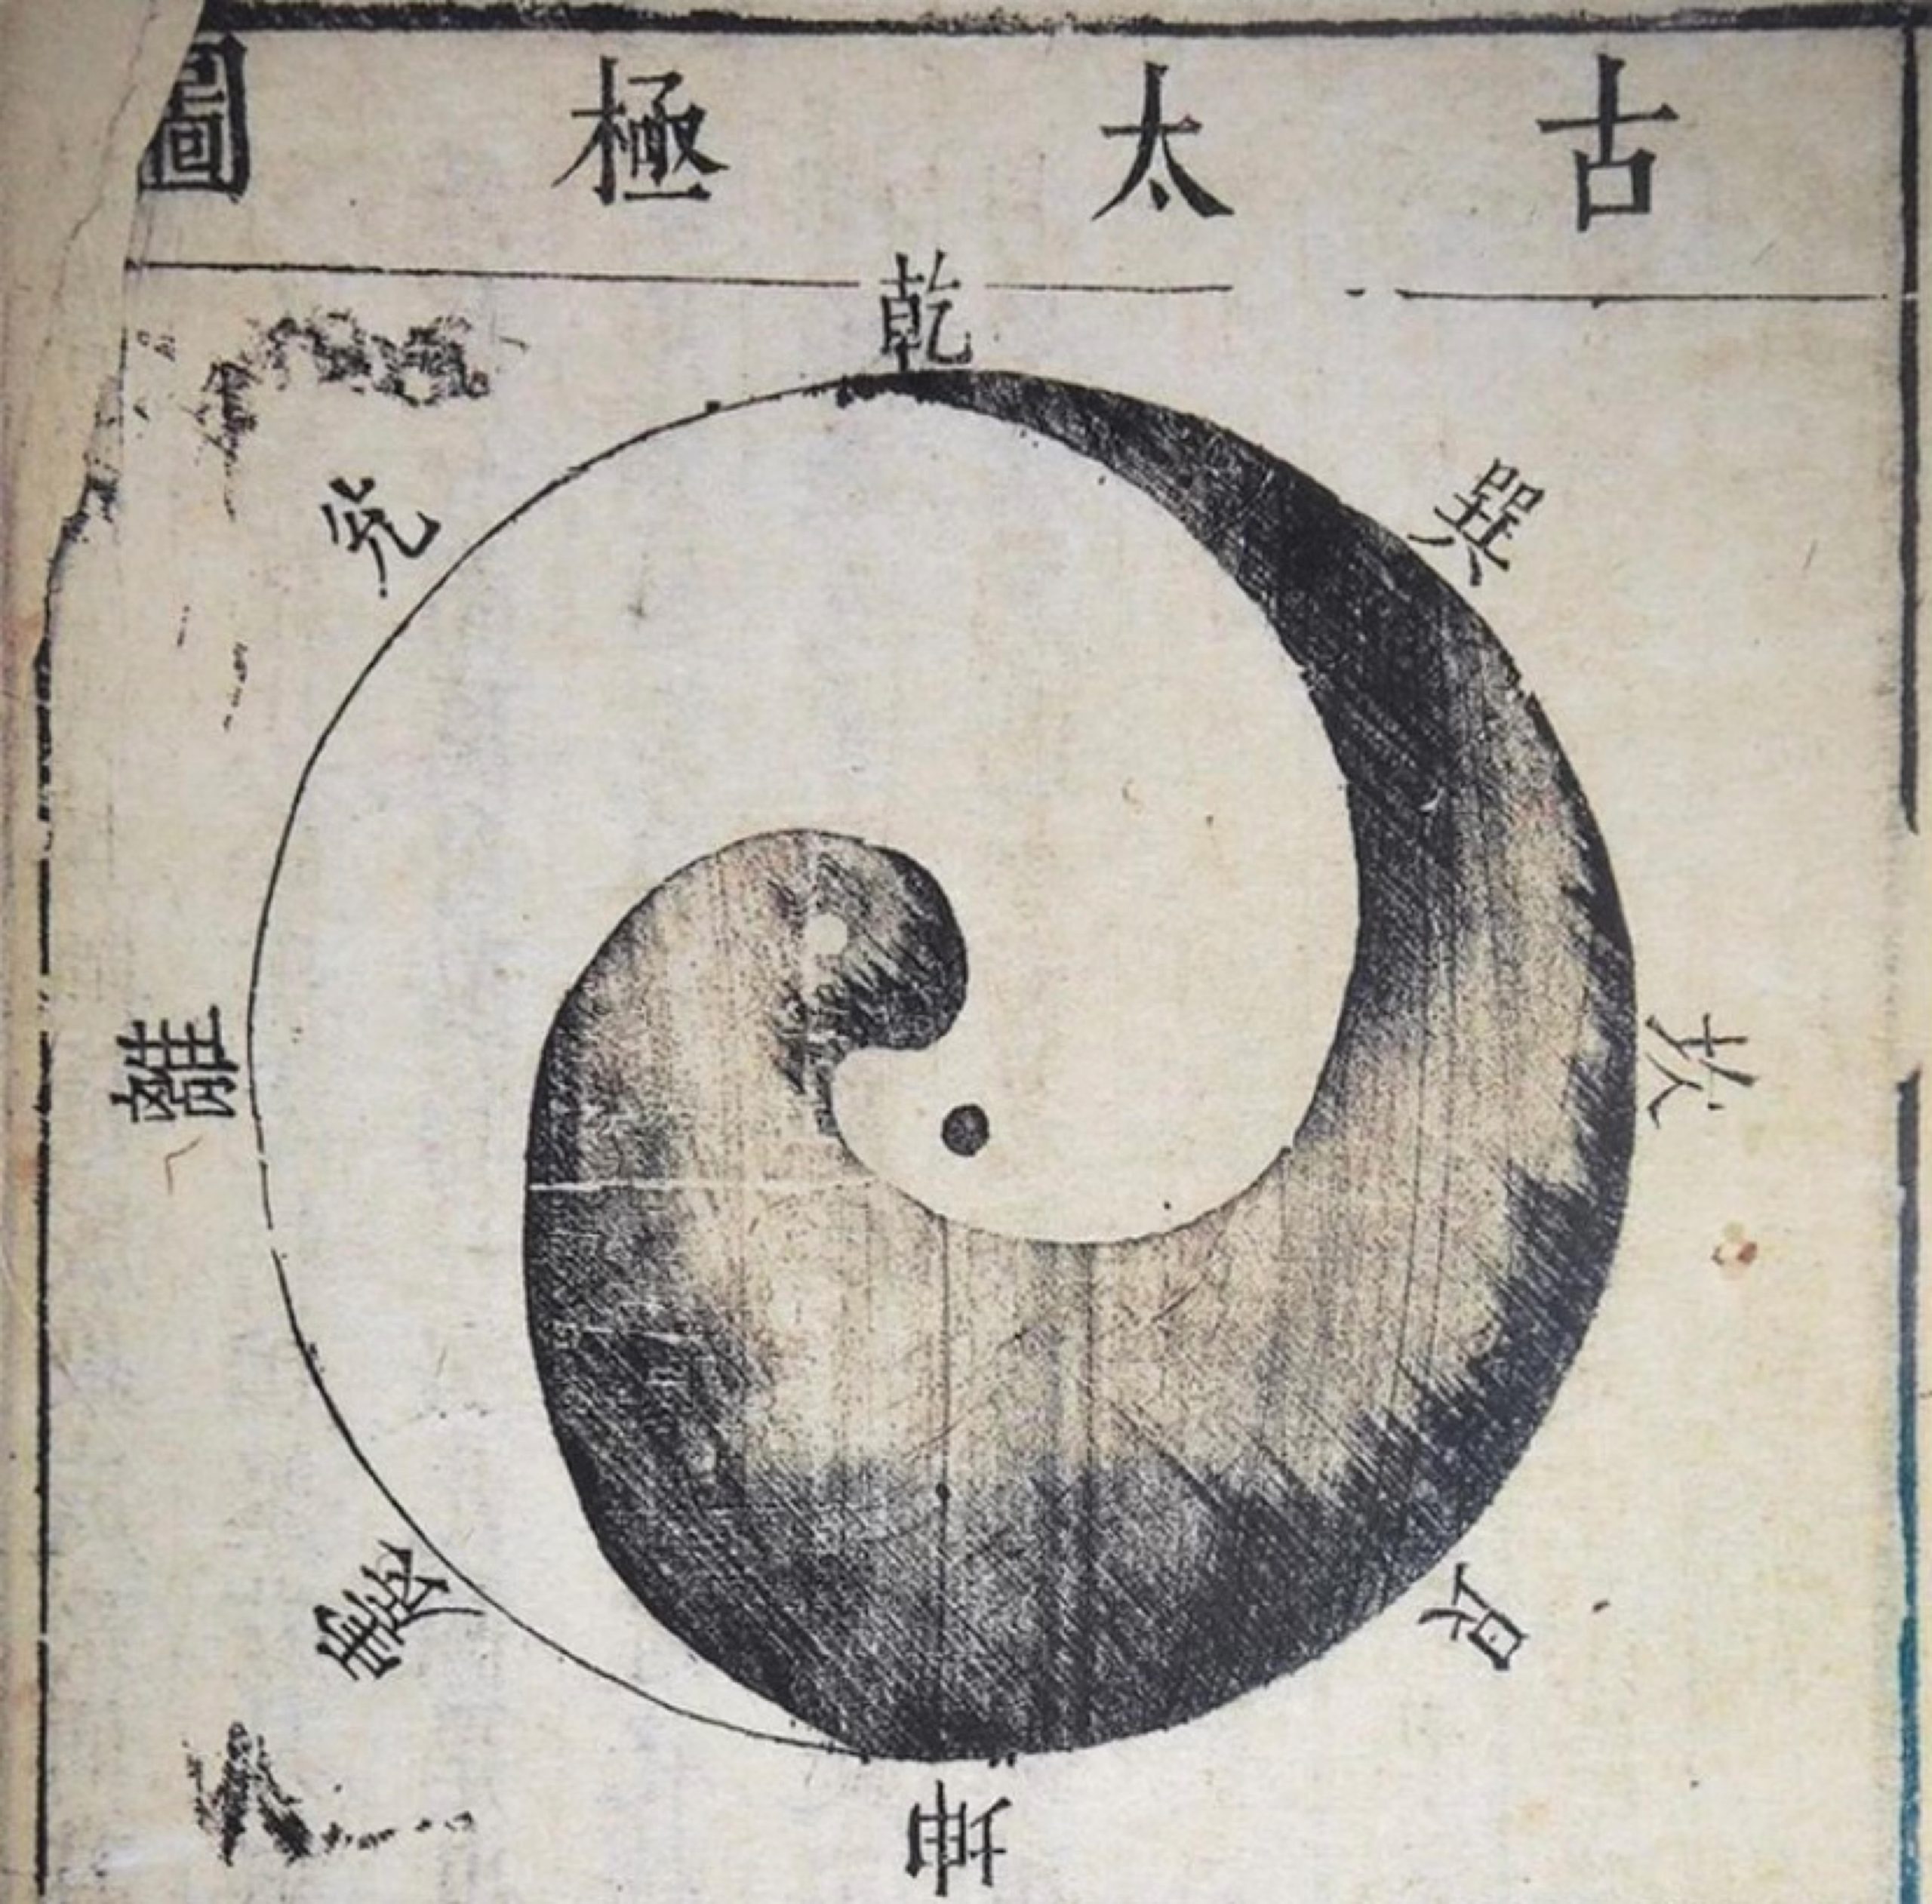 古太極圖
乾
兌
離
震
巽
坎
艮
坤